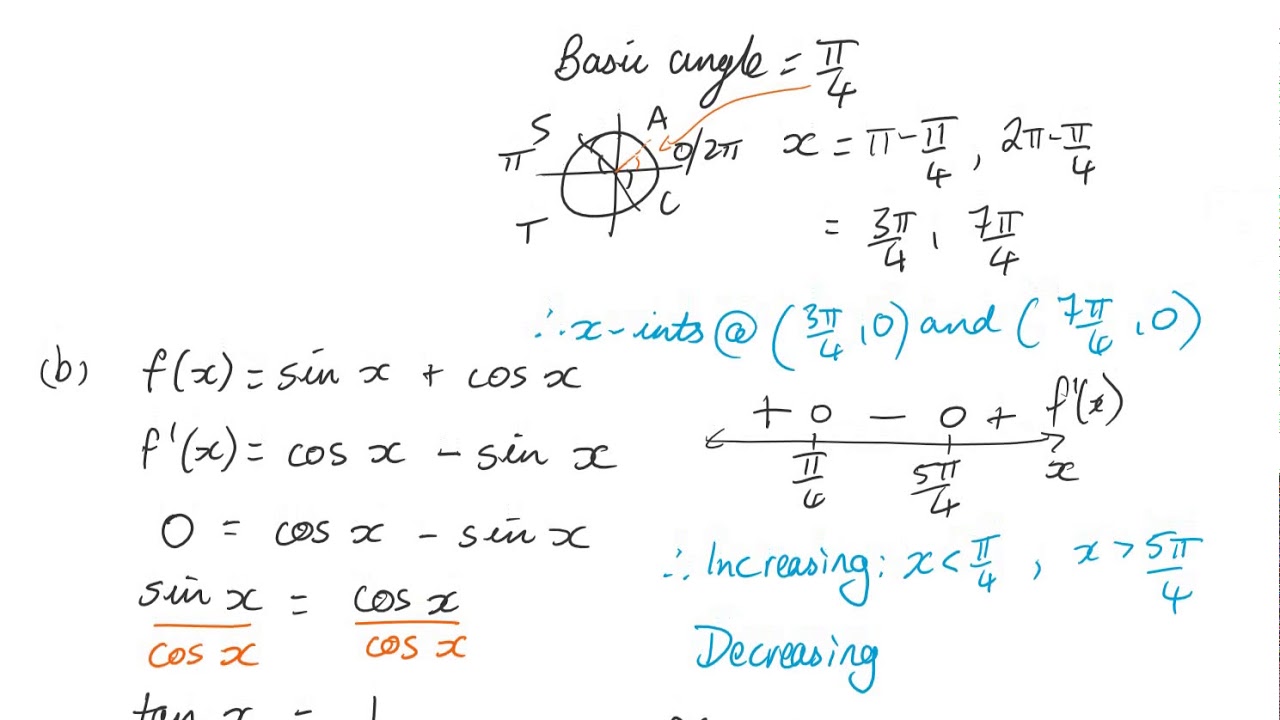 Basic angle = π/4
S A
π 0/2π
T C
x = π - π/4 , 2π - π/4
= 3π/4 , 7π/4
∴ x-ints @ (3π/4 , 0) and (7π/4 , 0)
(b) f(x) = sin x + cos x
f'(x) = cos x - sin x
0 = cos x - sin x
sin x / cos x = cos x / cos x
tan x = 1
+ 0 - 0 + f'(x)
π/4 5π/4 x
∴ Increasing: x < π/4 , x > 5π/4
Decreasing